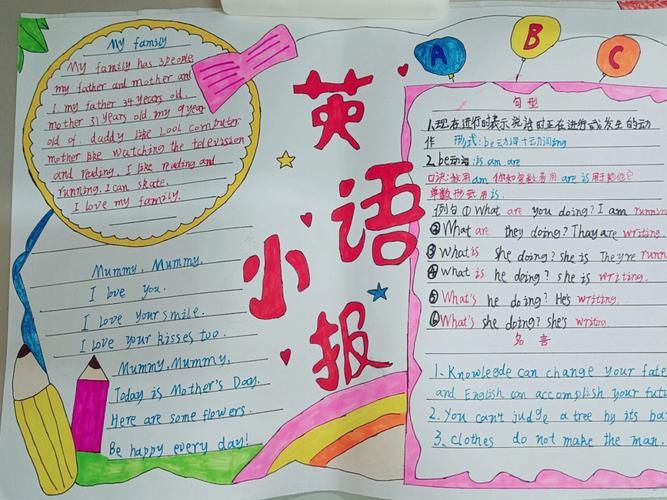 My family
My family has 3people
my father and mother and
I. my father 34 years old.
mother 31 years old. my 9 year
old of. daddy like Lool computer
mother like watching the television
and reading. I like reading and
running. I can skate.
I love my family.
Mummy, Mummy,
I love you.
I love your smile.
I love your kisses too.
Mummy, Mummy,
Today is Mother's Day.
Here are some flowers.
Be happy every day!
英语
小报
A B C
句型
1.现在进行时表示说话时正在进行或发生的动
作 形式:be动词+动词ing
2.be动词:is am are
口决:我用am 你和复数着用are is用于他她它
单数形式用is.
例句①What are you doing? I am runnin
②What are they doing? Thay are writing.
③What is she doing? she is They're runn
④what is he doing? she is writing.
⑤What's he doing? He's writing.
⑥What's she doing? she's writing.
名言
1. Knowlegde can change your fate
and English can accomplish your futu
2. You can't judge a tree by its ba
3. clothes do not make the man.